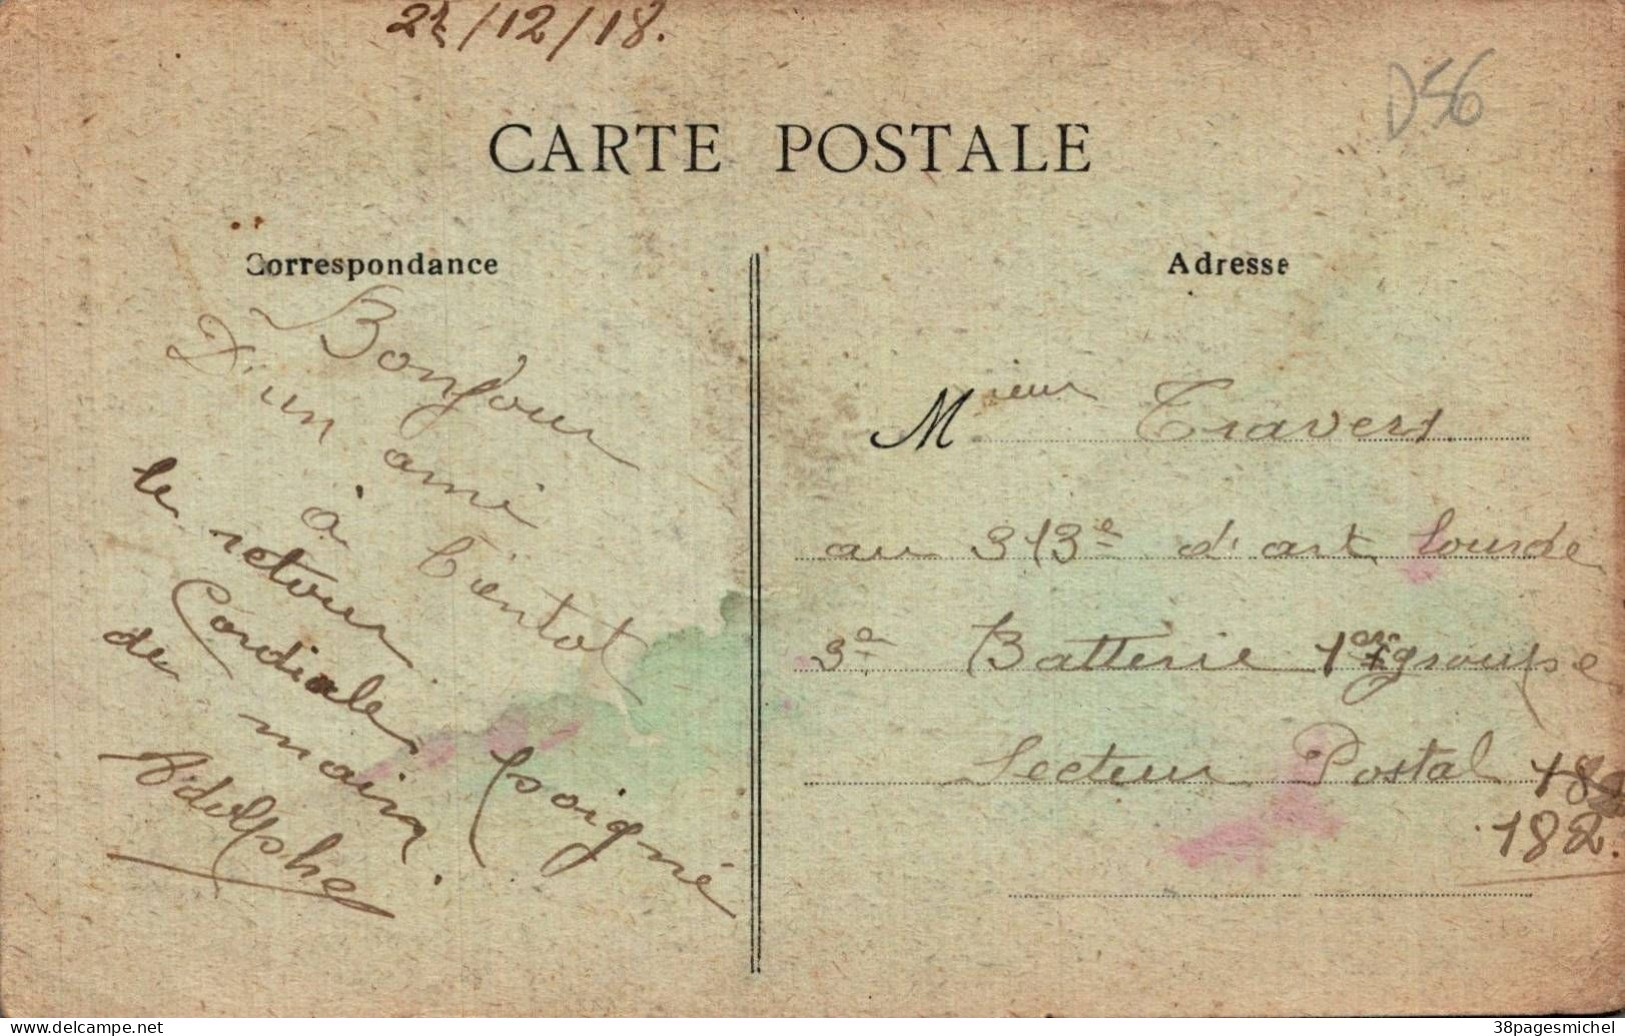 22/12/18.
D56
CARTE POSTALE
Correspondance
Bonjour
D'un ami
à bientot
le retour
Cordiale poigné
de main.
Adolphe
Adresse
Mieur Travers
au 313e d'art lourde
3e Batterie 1er groupe
Secteur Postal 182
182.
delcampe.net
38pagesmichel